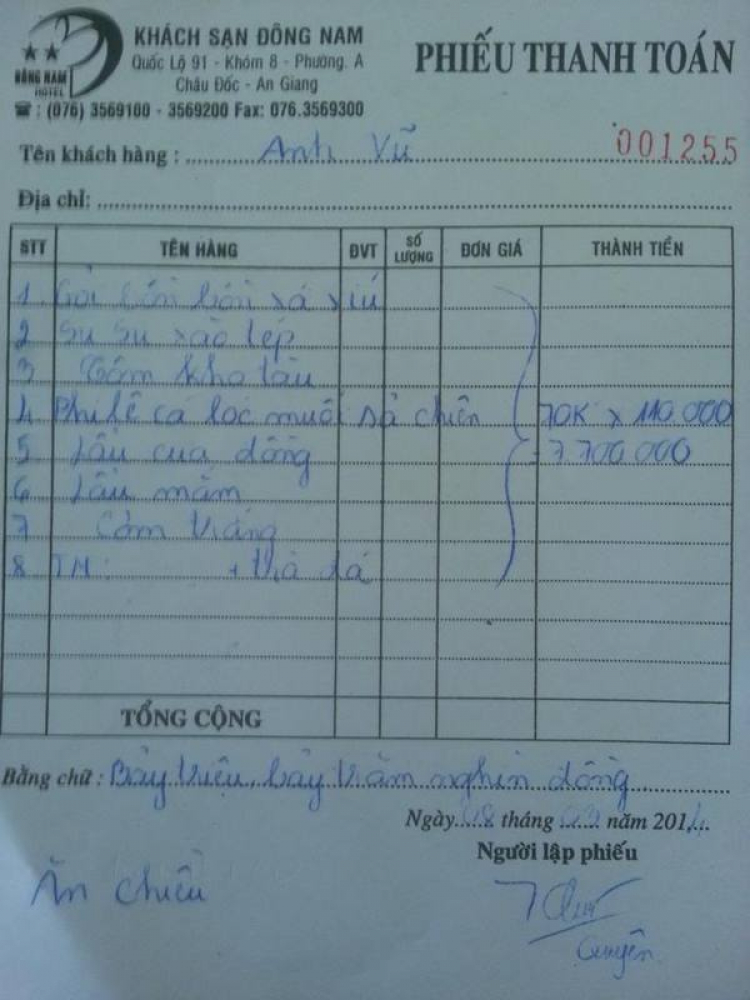 KHÁCH SẠN ĐÔNG NAM
Quốc Lộ 91 - Khóm 8 - Phường. A
Châu Đốc - An Giang
ĐÔNG NAM
HOTEL
☎ : (076) 3569100 - 3569200 Fax: 076.3569300
PHIẾU THANH TOÁN
Tên khách hàng : Anh Vũ
001255
Địa chỉ:
STT TÊN HÀNG ĐVT SỐ LƯỢNG ĐƠN GIÁ THÀNH TIỀN
1 Gỏi bồn bồn xá xíu
2 Su Su xào tép
3 Tôm kho tàu
4 Phi lê cá lóc muối sả chiên 70K x 110.000
5 Lẩu cua đồng 7.700.000
6 Lẩu mắm
7 Cơm trắng
8 TM: + trà đá
TỔNG CỘNG
Bằng chữ : Bảy triệu, bảy trăm nghìn đồng
Ngày 08 tháng năm 2014
Người lập phiếu
Ăn chiều
Quyên